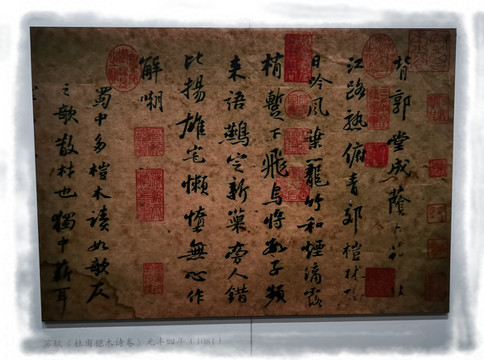 背郭堂成蔭白茅
江路熟俯青郊榿林礙
日吟風葉籠竹和煙滴露
梢暫下飛烏將數子頻
來語鷰定新巢旁人錯
比揚雄宅懶惰無心作
解嘲
蜀中多榿木讀如欹仄
之欹散材也獨中薪耳
苏轼《杜甫桤木诗卷》元丰四年(1081)